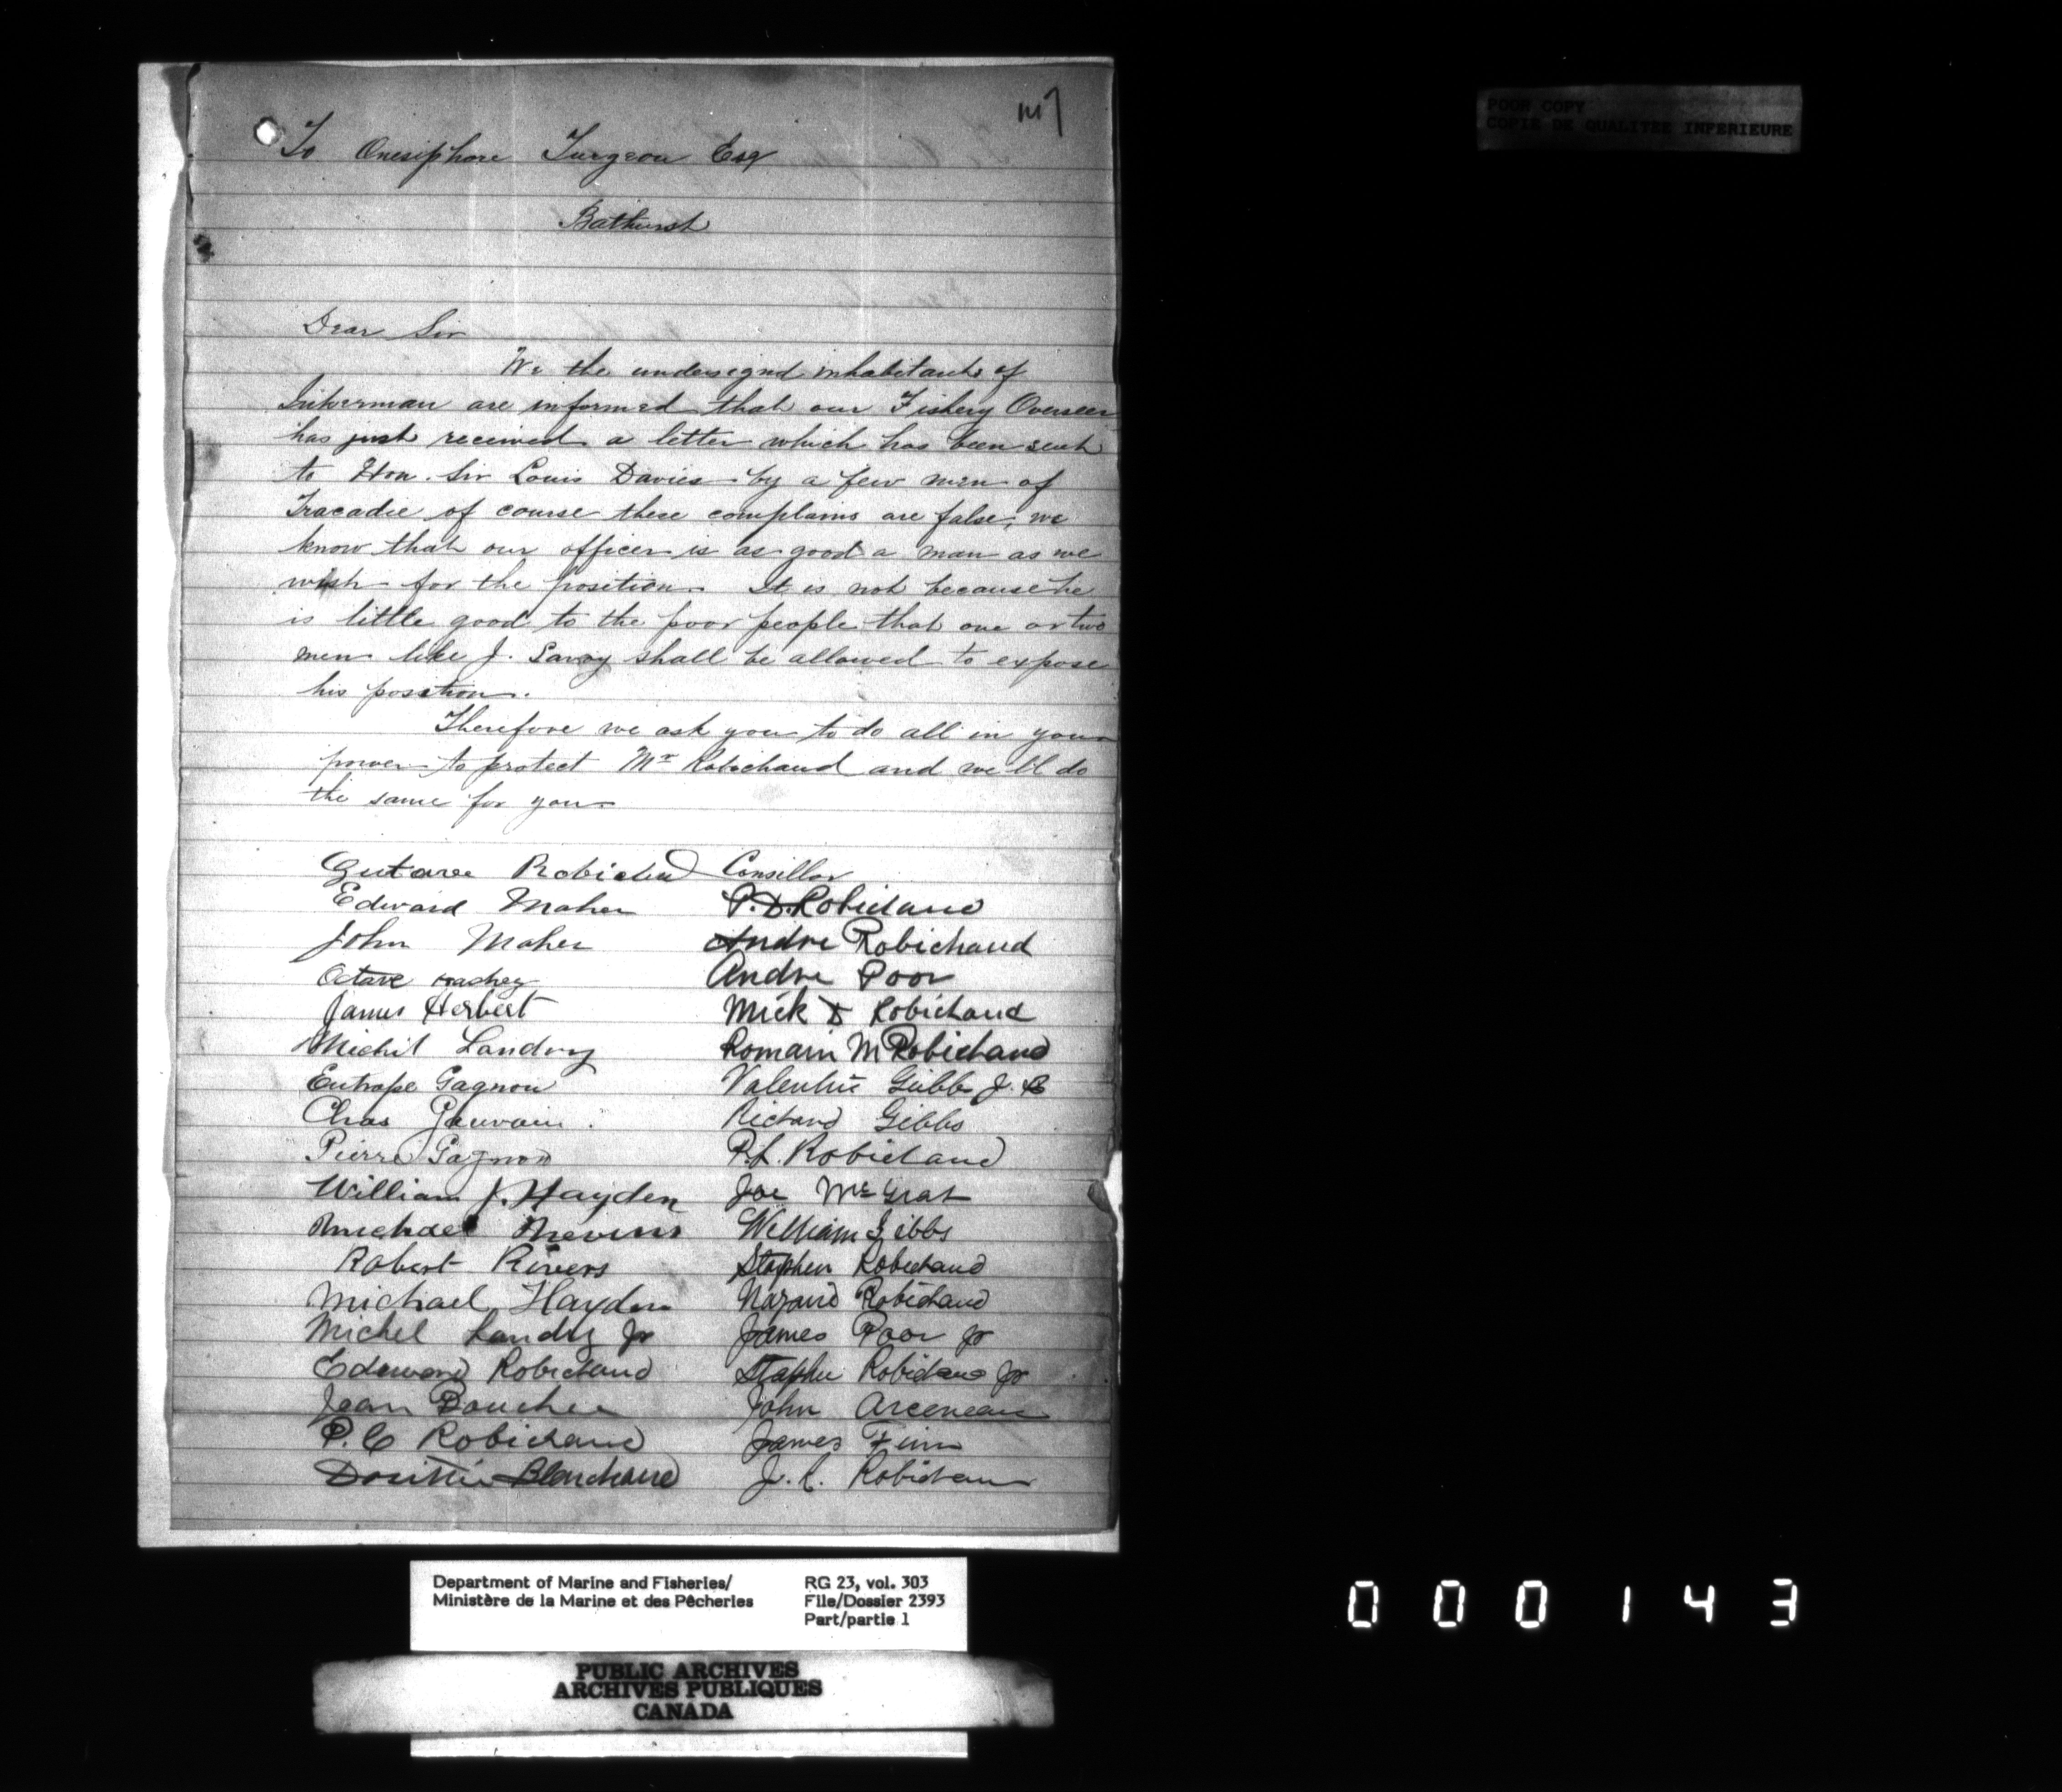 147
POOR COPY
COPIE DE QUALITEE INFERIEURE
To Onesiphore Turgeon Esq
Bathurst
Dear Sir
We the undersignd inhabitants of
Inkerman are informed that our Fishery Overseer
has just received a letter which has been sent
to Hon. Sir Louis Davies by a few men of
Tracadie of course these complains are false, we
know that our officer is as good a man as we
wish for the position. It is not because he
is little good to the poor people that one or two
men like J. Savoy shall be allowed to expose
his position.
Therefore we ask you to do all in your
power to protect Mr Robichaud and we'll do
the same for you
Gustave Robichaud Consillor
Edward Maher P.D. Robichaud
John Maher Andre Robichaud
Octave Andre Poor
James Herbert Mick D Robichaud
Michil Landry Romain M Robichaud
Eutrope Gagnon Valentine Gibbs J.P.
Chas Gauvain. Richard Gibbs
Pierre Gagnon P.L. Robichaud
William J. Hayden Joe McGrat
Michael Nevins William Gibbs
Robert Rivers Stephen Robichaud
Michael Hayden Nazaire Robichaud
Michel Landry Jr James Poor Jr
Edward Robichaud Stephen Robichaud Jr
Jean Boucher John Arceneau
P.C Robichaud James Finn
Dosithée Blanchard J.R. Robichaud
Department of Marine and Fisheries/ RG 23, vol. 303
Ministère de la Marine et des Pêcheries File/Dossier 2393
Part/partie 1
PUBLIC ARCHIVES
ARCHIVES PUBLIQUES
CANADA
000143